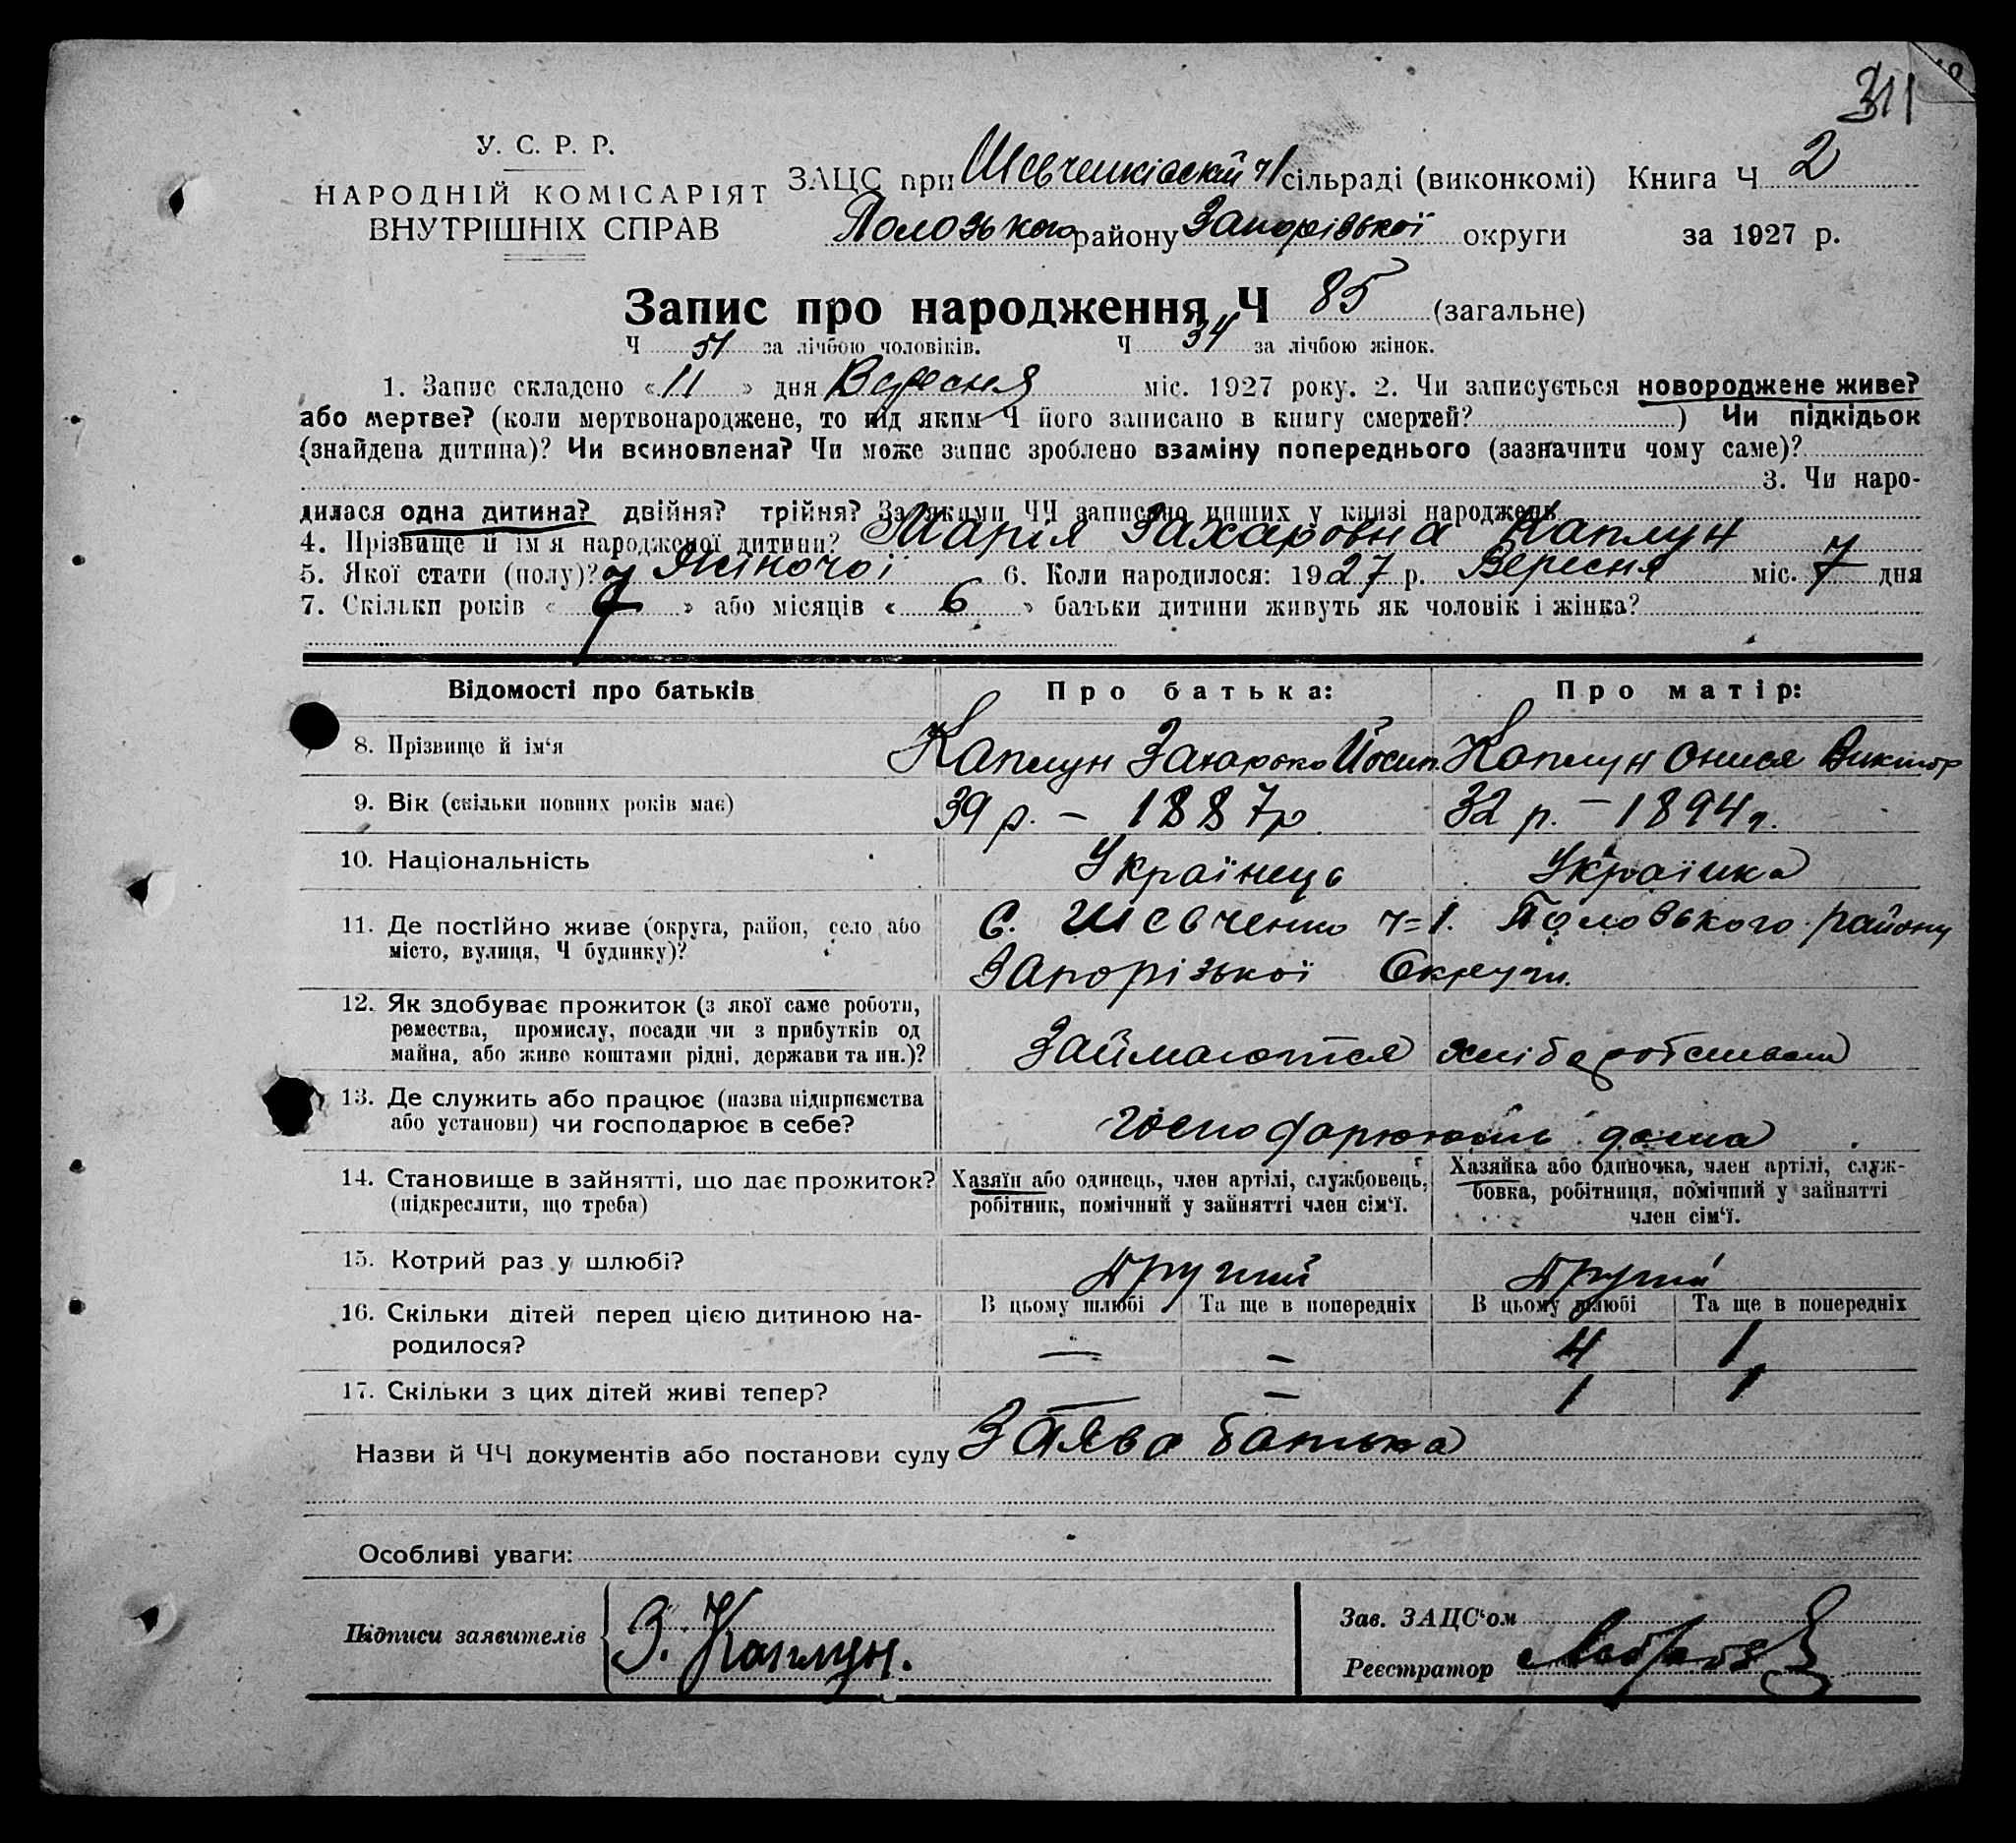 311
У. С. Р. Р.
НАРОДНІЙ КОМІСАРІЯТ
ВНУТРІШНІХ СПРАВ
ЗАЦС при Шевченківській ч/1 сільраді (виконкомі) Книга Ч 2
Полозького району Запорізької округи за 1927 р.
Запис про народження Ч 85 (загальне)
Ч 51 за лічбою чоловіків. Ч 34 за лічбою жінок.
1. Запис складено «11» дня Вересня міс. 1927 року. 2. Чи записується новороджене живе?
або мертве? (коли мертвонароджене, то під яким Ч його записано в книгу смертей? ) Чи підкідьок
(знайдена дитина)? Чи всиновлена? Чи може запис зроблено взаміну попереднього (зазначити чому саме)?
3. Чи наро-
дилася одна дитина? двійня? трійня? За якими ЧЧ записано инших у книзі народжень
4. Прізвище й ім'я народженої дитини? Марія Захаровна Каплун
5. Якої стати (полу)? Жіночої 6. Коли народилося: 1927 р. Вересня міс. 7 дня
7. Скільки років « 7 » або місяців « 6 » батьки дитини живуть як чоловік і жінка?
Відомості про батьків Про батька: Про матір:
8. Прізвище й ім'я Каплун Захарько Йосип. Каплун Онися Виктор
9. Вік (скільки повних років має) 39 р. – 1887 р. 32 р. – 1894 р.
10. Національність Українець Українка
11. Де постійно живе (округа, район, село або
місто, вулиця, Ч будинку)? С. Шевченко ч=1. Половського району
Запорізької Округи.
12. Як здобуває прожиток (з якої саме роботи,
ремества, промислу, посади чи з прибутків од
майна, або живе коштами рідні, держави та ин.)? Займаются хліборобством
13. Де служить або працює (назва підприємства
або установи) чи господарює в себе? господарюють дома
14. Становище в зайнятті, що дає прожиток?
(підкреслити, що треба)
Хазяїн або одинець, член артілі, службовець,
робітник, помічний у зайнятті член сім'ї.
Хазяйка або одиночка, член артілі, служ-
бовка, робітниця, помічний у зайнятті
член сім'ї.
15. Котрий раз у шлюбі? Другий Другий
16. Скільки дітей перед цією дитиною на-
родилося?
В цьому шлюбі Та ще в попередніх В цьому шлюбі Та ще в попередніх
— – 4 1
17. Скільки з цих дітей живі тепер? — – 1 1
Назви й ЧЧ документів або постанови суду Заява батька
Особливі уваги:
Підписи заявителів З. Каплун.
Зав. ЗАЦС'ом
Реєстратор